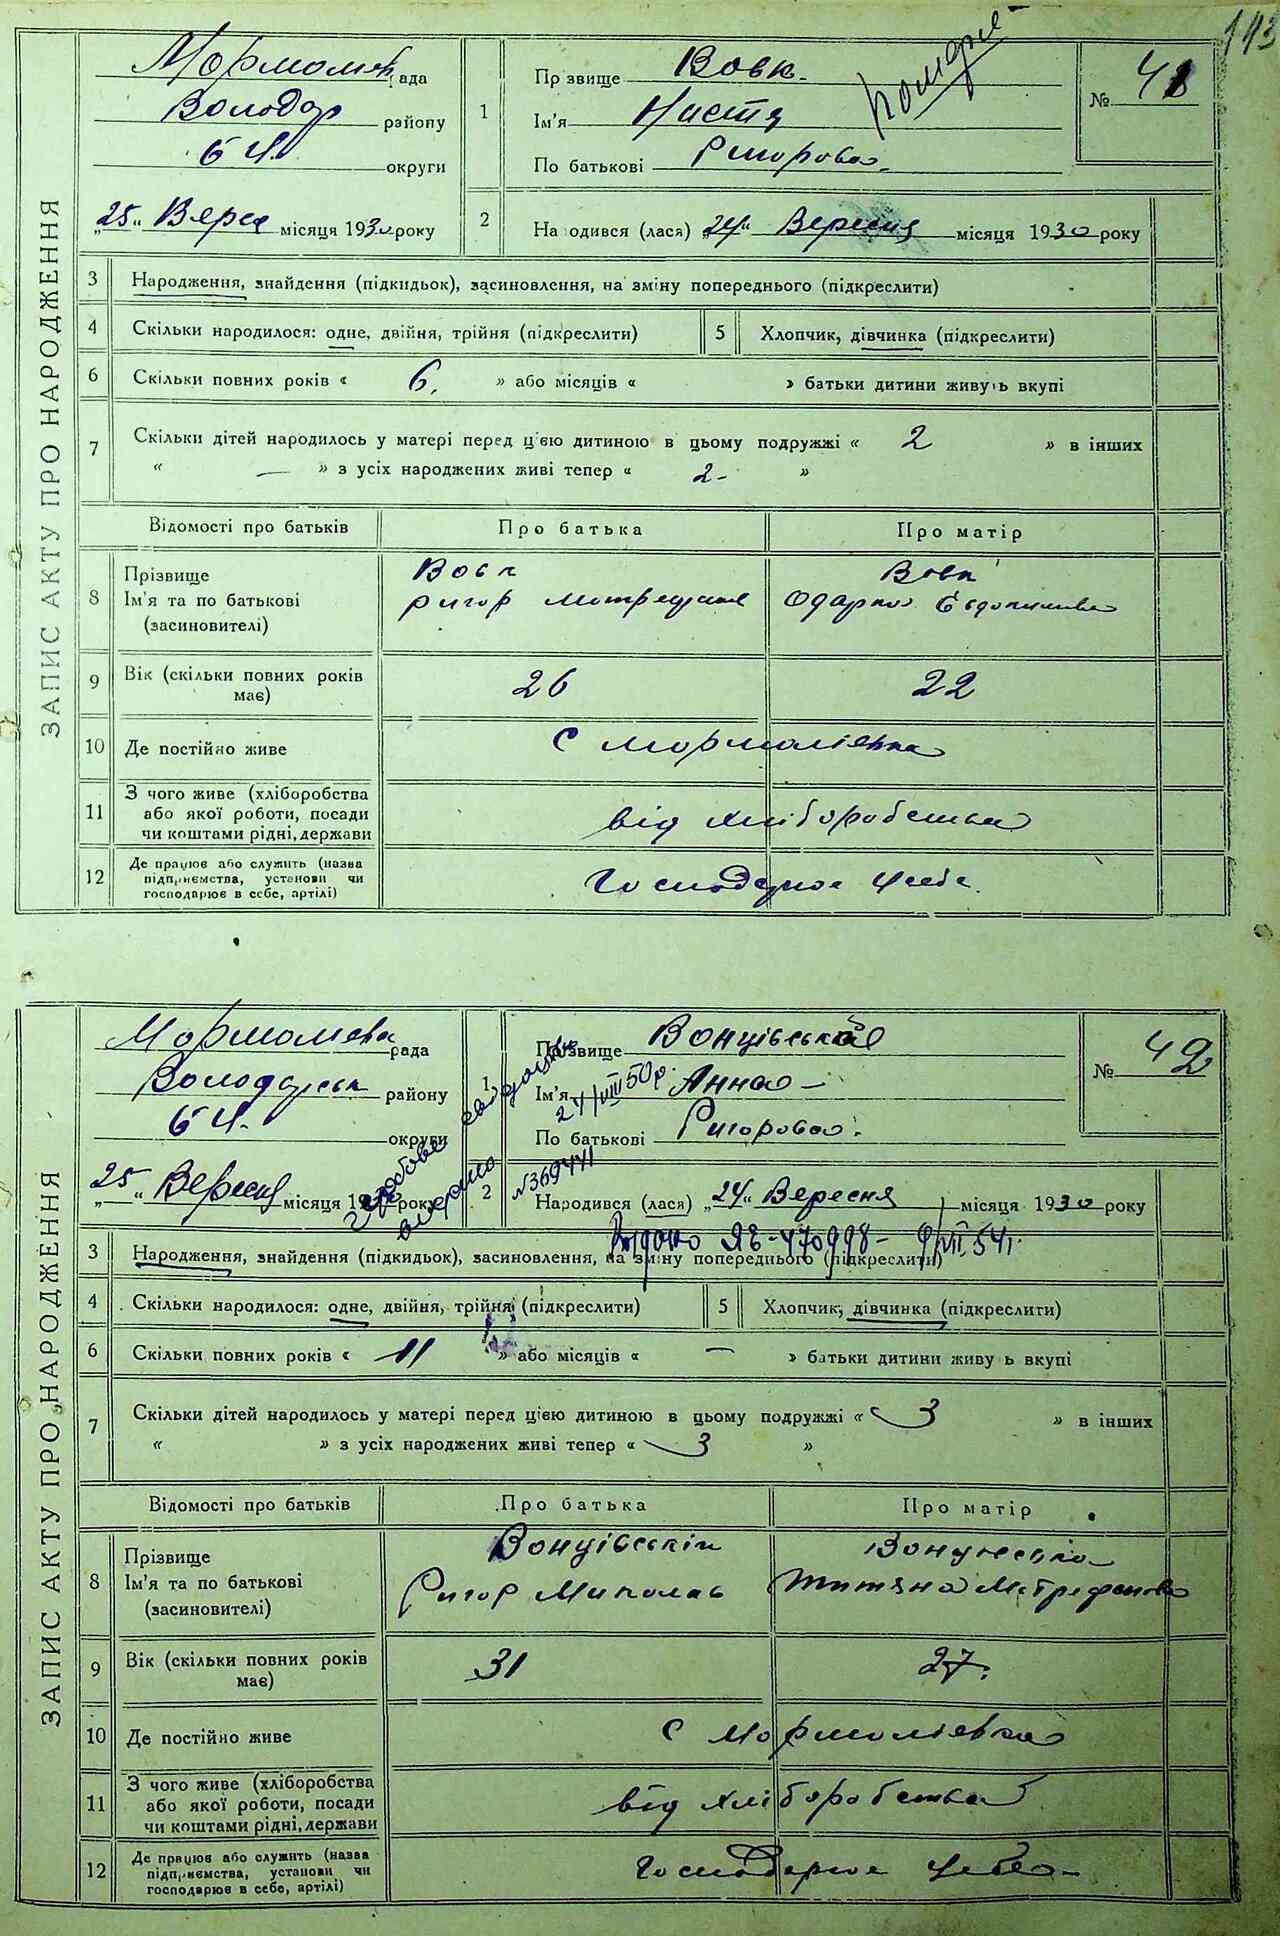 113
ЗАПИС АКТУ ПРО НАРОДЖЕННЯ
Мормолів рада
Володар району
БЦ. округи
„25“ Верес місяця 1930 року
1 Прізвище Вовк.
Ім'я Настя
По батькові Ригорова.
№ 41
2 Народився (лася) „24“ Вересня місяця 1930 року
3 Народження, знайдення (підкидьок), засиновлення, на зміну попереднього (підкреслити)
4 Скільки народилося: одне, двійня, трійня (підкреслити) 5 Хлопчик, дівчинка (підкреслити)
6 Скільки повних років « 6. » або місяців « » батьки дитини живуть вкупі
7 Скільки дітей народилось у матері перед цією дитиною в цьому подружжі « 2 » в інших
« — » з усіх народжених живі тепер « 2 - »
Відомості про батьків Про батька Про матір
8 Прізвище Вовк Вовк
Ім'я та по батькові Ригор Одарка
(засиновителі)
9 Вік (скільки повних років має) 26 22
10 Де постійно живе С Мормоліевка
11 З чого живе (хліборобства
або якої роботи, посади
чи коштами рідні, держави від хліборобства
12 Де працює або служить (назва
підприємства, установи чи
господарює в себе, артілі) Господарює у себе.
ЗАПИС АКТУ ПРО НАРОДЖЕННЯ
Мормолієва рада
Володарськ району
БЦ. округи
25“ Вересня місяця року
1 Прізвище Вонцівська
Ім'я Анна —
По батькові Ригорова.
№ 42
24/VIII 50р.
№369441
2 Народився (лася) „24“ Вересня місяця 1930 року
Видано ЯБ-470998-
3 Народження, знайдення (підкидьок), засиновлення, на зміну попереднього (підкреслити)
4 Скільки народилося: одне, двійня, трійня (підкреслити) 5 Хлопчик, дівчинка (підкреслити)
6 Скільки повних років « 11 » або місяців « — » батьки дитини живуть вкупі
7 Скільки дітей народилось у матері перед цією дитиною в цьому подружжі « 3 » в інших
« » з усіх народжених живі тепер « 3 »
Відомості про батьків Про батька Про матір
8 Прізвище Вонцівскій
Ім'я та по батькові Ригор Миколав Титяна Метрефанова
(засиновителі)
9 Вік (скільки повних років має) 31 27.
10 Де постійно живе С Мормоліевка
11 З чого живе (хліборобства
або якої роботи, посади
чи коштами рідні, держави від хліборобства
12 Де працює або служить (назва
підприємства, установи чи
господарює в себе, артілі) Господарює у себе -